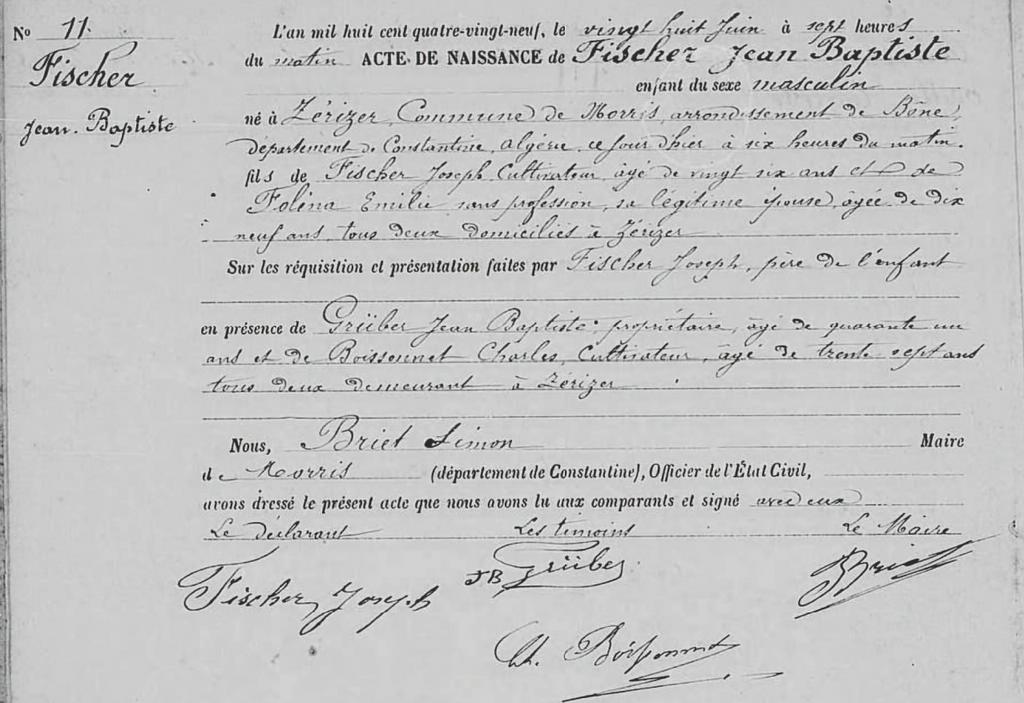 N° 11.
Fischer
Jean-Baptiste
L'an mil huit cent quatre-vingt-neuf, le vingt huit Juin à sept heures
du matin ACTE DE NAISSANCE de Fischer Jean Baptiste
enfant du sexe masculin
né à Zérizer, Commune de Morris, arrondissement de Bône,
département de Constantine, algérie, ce jour d'hier à six heures du matin.
fils de Fischer Joseph, Cultivateur, âgé de vingt six ans et de
Foléna Emilie sans profession, sa légitime épouse, âgée de dix
neuf ans, tous deux domiciliés à Zérizer
Sur les réquisition et présentation faites par Fischer Joseph, père de l'enfant
en présence de Grüber Jean Baptiste propriétaire, âgé de quarante un
ans et de Boissonnet Charles, Cultivateur, âgé de trente sept ans
tous deux demeurant à Zérizer
Nous, Briet Simon Maire
de Morris (département de Constantine), Officier de l'État Civil,
avons dressé le présent acte que nous avons lu aux comparants et signé avec eux
Le déclarant Les témoins Le Maire
Fischer Joseph JB Grüber Briet
Ch. Boissonnet